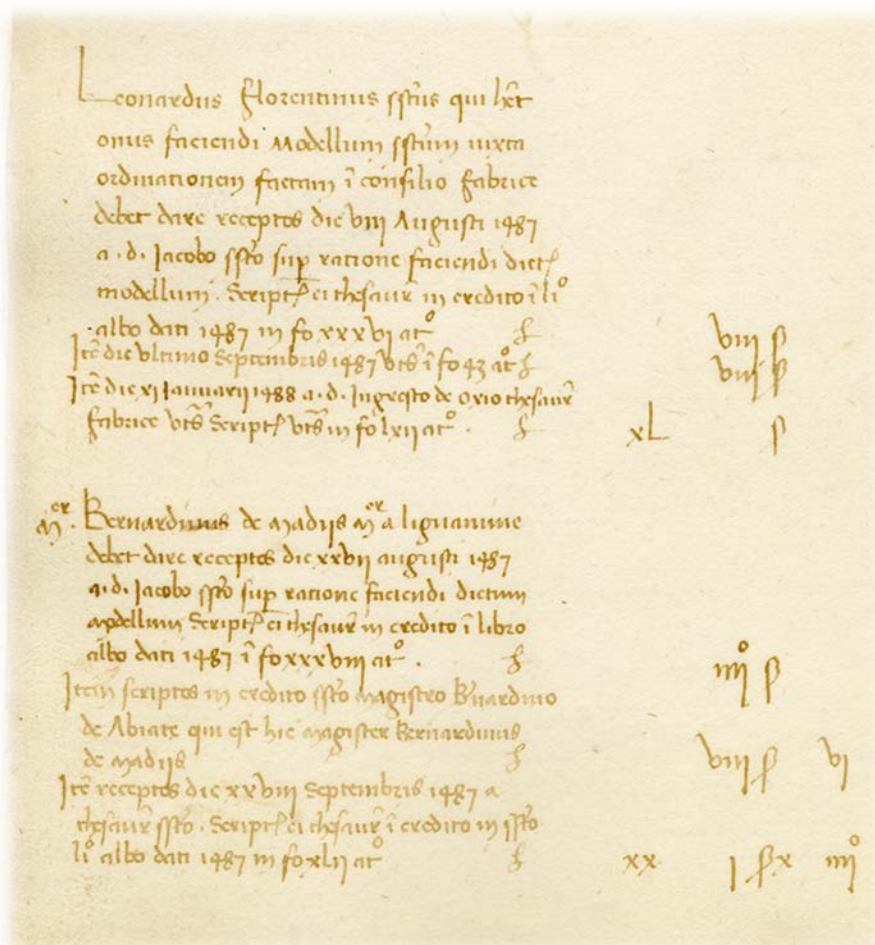 Leonardus Florentinus sſtus qui hēt
onus faciendi Modellum sſtum iuxta
ordinationem factam ī consilio Fabrice
debet dare receptos die viii Augusti 1487
a. d. Iacobo sſto sup ratione faciendi dict
modellum. Script ei thesaur in credito ī lio
albo dati 1487 in fo xxxvi ato viii
Itē die ultimo Septembris 1487 uts ī fo 43 ato viii
Itē die xi Ianuarii 1488 a. d. de Oxio thesaur
Fabrice uts Script uts in fo lxii ato. xL
Mer. Bernardinus de Madiis Mer a lignamine
debet dare receptos die xxvii augusti 1487
a. d. Iacobo sſto sup ratione faciendi dictum
modellum Script ei thesaur in credito ī libro
albo dati 1487 ī fo xxxviii ato. iiiio
Item scriptos in credito sſto Magistro Bnardino
de Abiate qui est hic Magister Bernardinus
de Madiis viii vi
Itē receptos die xxviii Septembris 1487 a
thesaur sſto. Script ei thesaur ī credito in sſto
lio albo dati 1487 in fo xlii ato xx i x iiiio